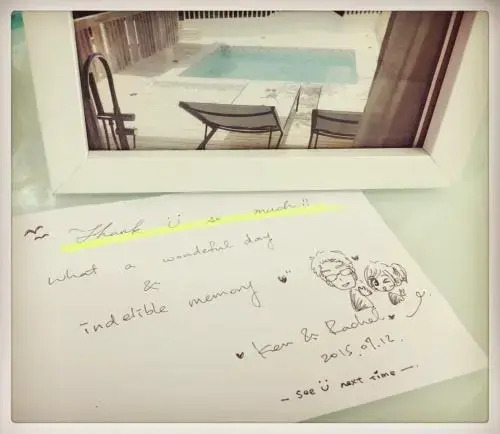 Thank Ü so much!!
What a woadeful day
&
indelible memory
Ken & Rachel
2015.09.12.
- see Ü next time -